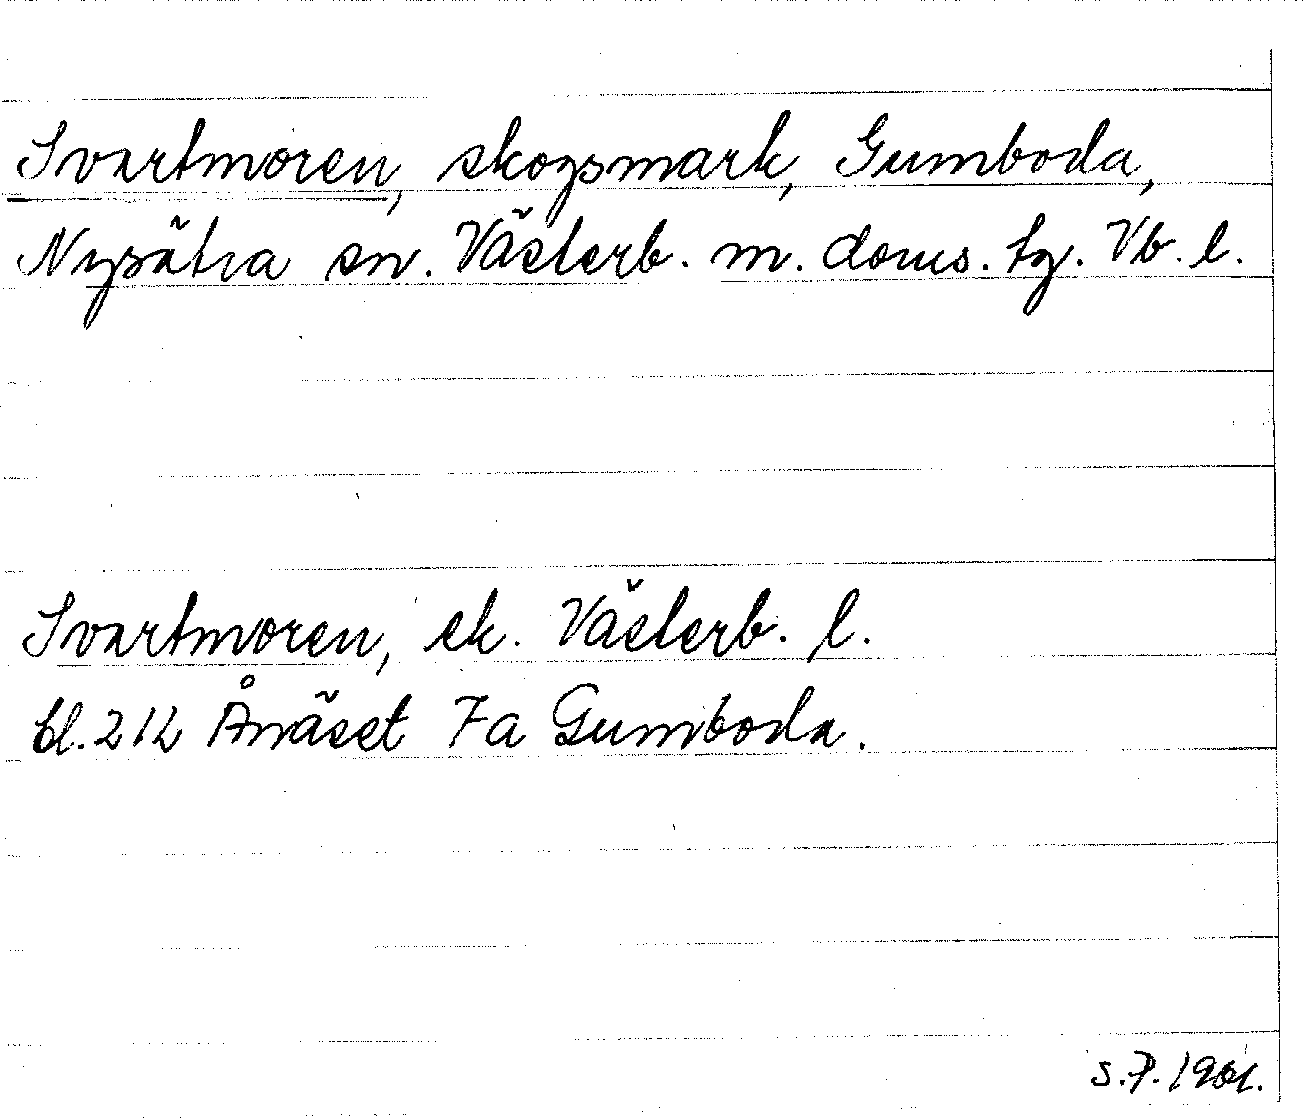 Svartmoren, skogsmark, Gumboda,
Nysätra sn. Västerb. m. doms. tg. Vb. l.
Svartmoren, ek. Västerb. l.
bl. 212 Ånäset 7a Gumboda.
S.P. 1961.